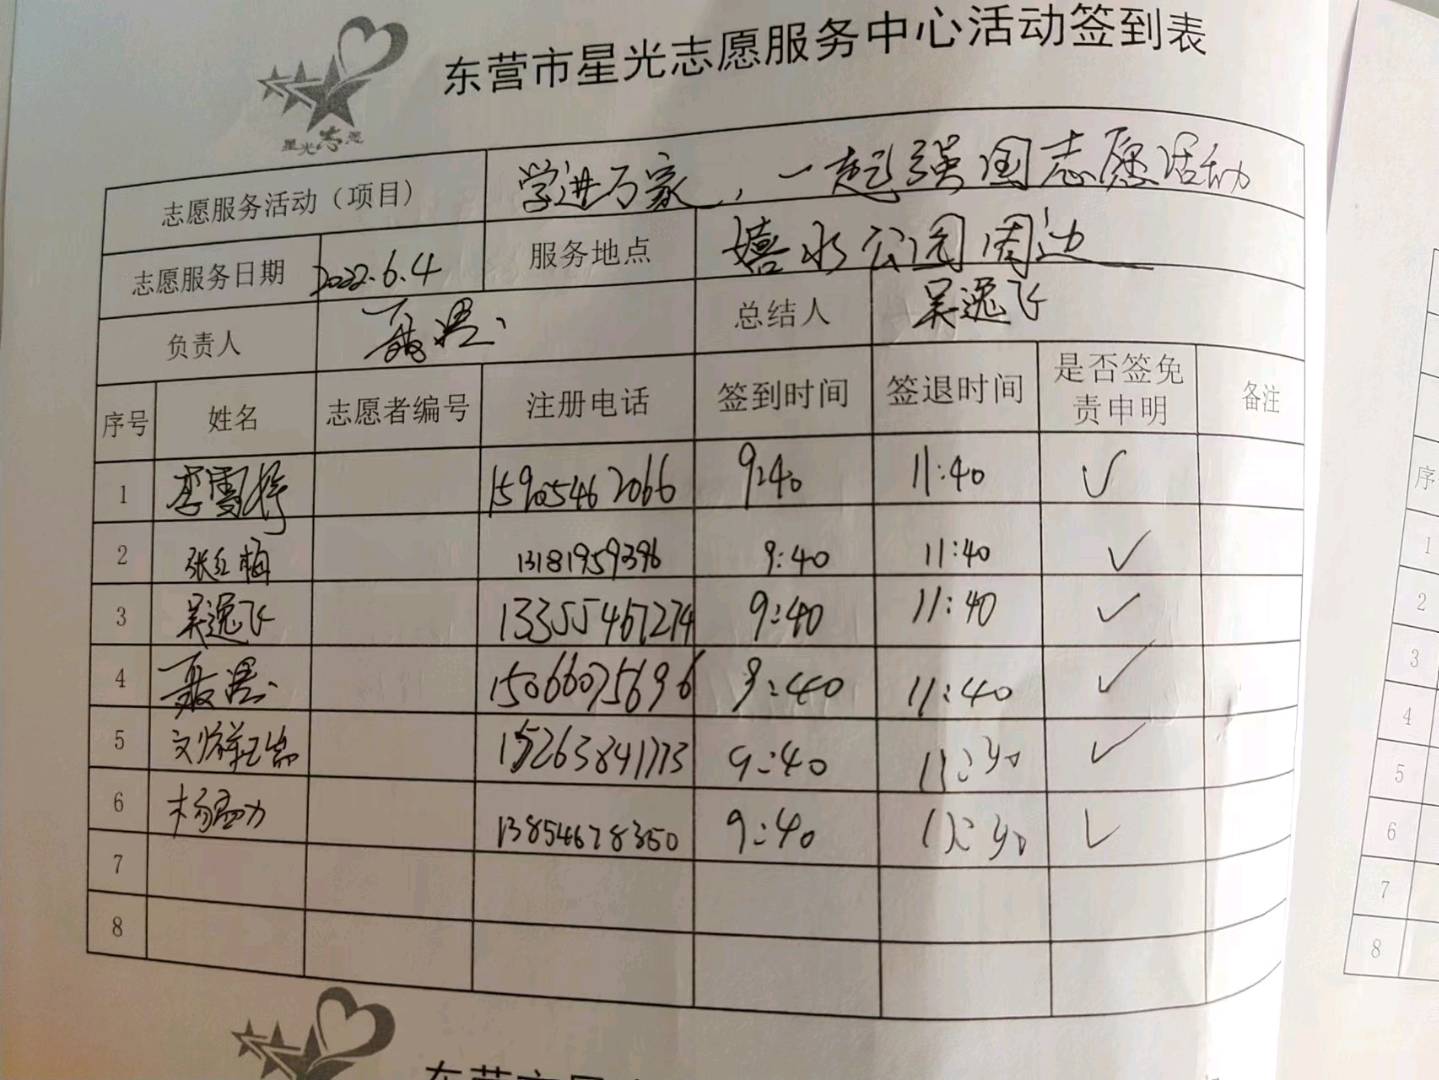 东营市星光志愿服务中心活动签到表
星光志愿
志愿服务活动（项目） 学进万家，一起强国志愿活动
志愿服务日期 2022.6.4 服务地点 嬉水公园周边
负责人 总结人 吴逸飞
序号 姓名 志愿者编号 注册电话 签到时间 签退时间 是否签免责申明 备注
1 李雪婷 15905462066 9:40 11:40 ✓
2 张红梅 13181959396 9:40 11:40 ✓
3 吴逸飞 13355467274 9:40 11:40 ✓
4 15066075696 9:40 11:40 ✓
5 15263841773 9:40 11:40 ✓
6 13854678350 9:40 11:40 ✓
7
8
序
1
2
3
4
5
6
7
8